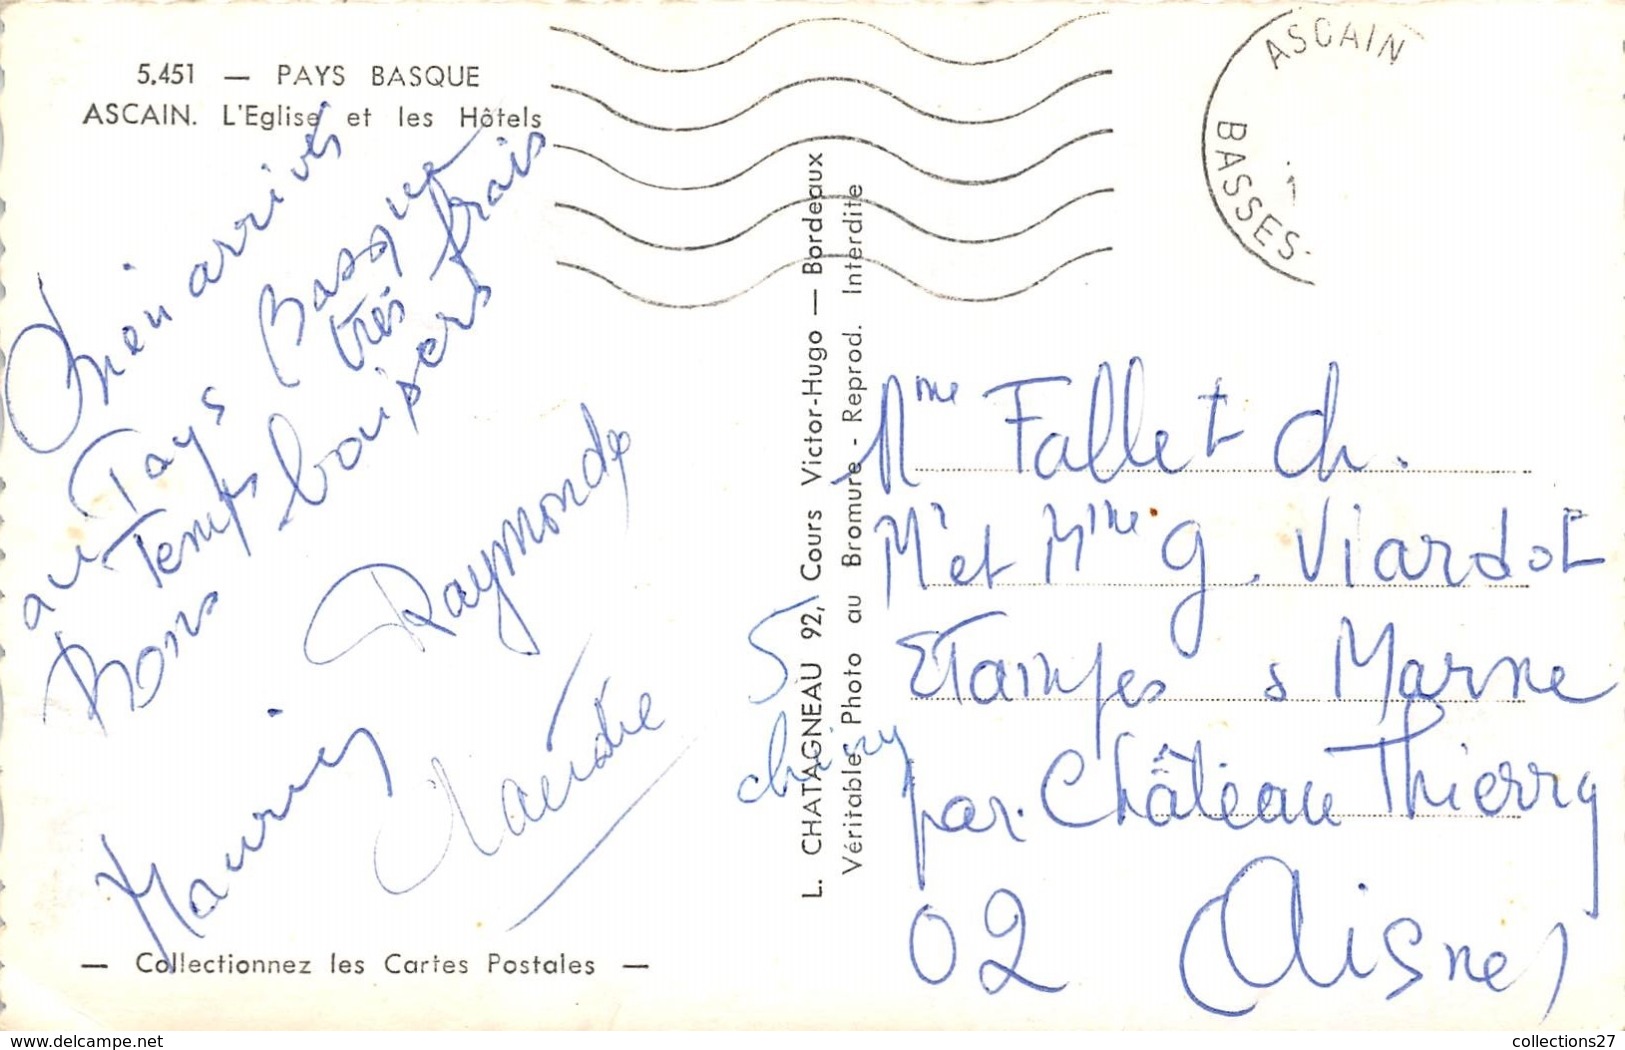 5.451 — PAYS BASQUE
ASCAIN. L'Eglise et les Hôtels
bien arrivés
au Pays Basque
Temps très frais
Bons baisers
Raymonde
Maurice
Claudie
— Collectionnez les Cartes Postales —
L. CHATAGNEAU 92, Cours Victor-Hugo — Bordeaux
Véritable Photo au Bromure - Reprod. Interdite
ASCAIN
BASSES
1
5
Mme Fallet Ch.
Mr et Mme G. Viardot
Etampes s Marne
par Château Thierry
02 (Aisne)
delcampe.net
collections27